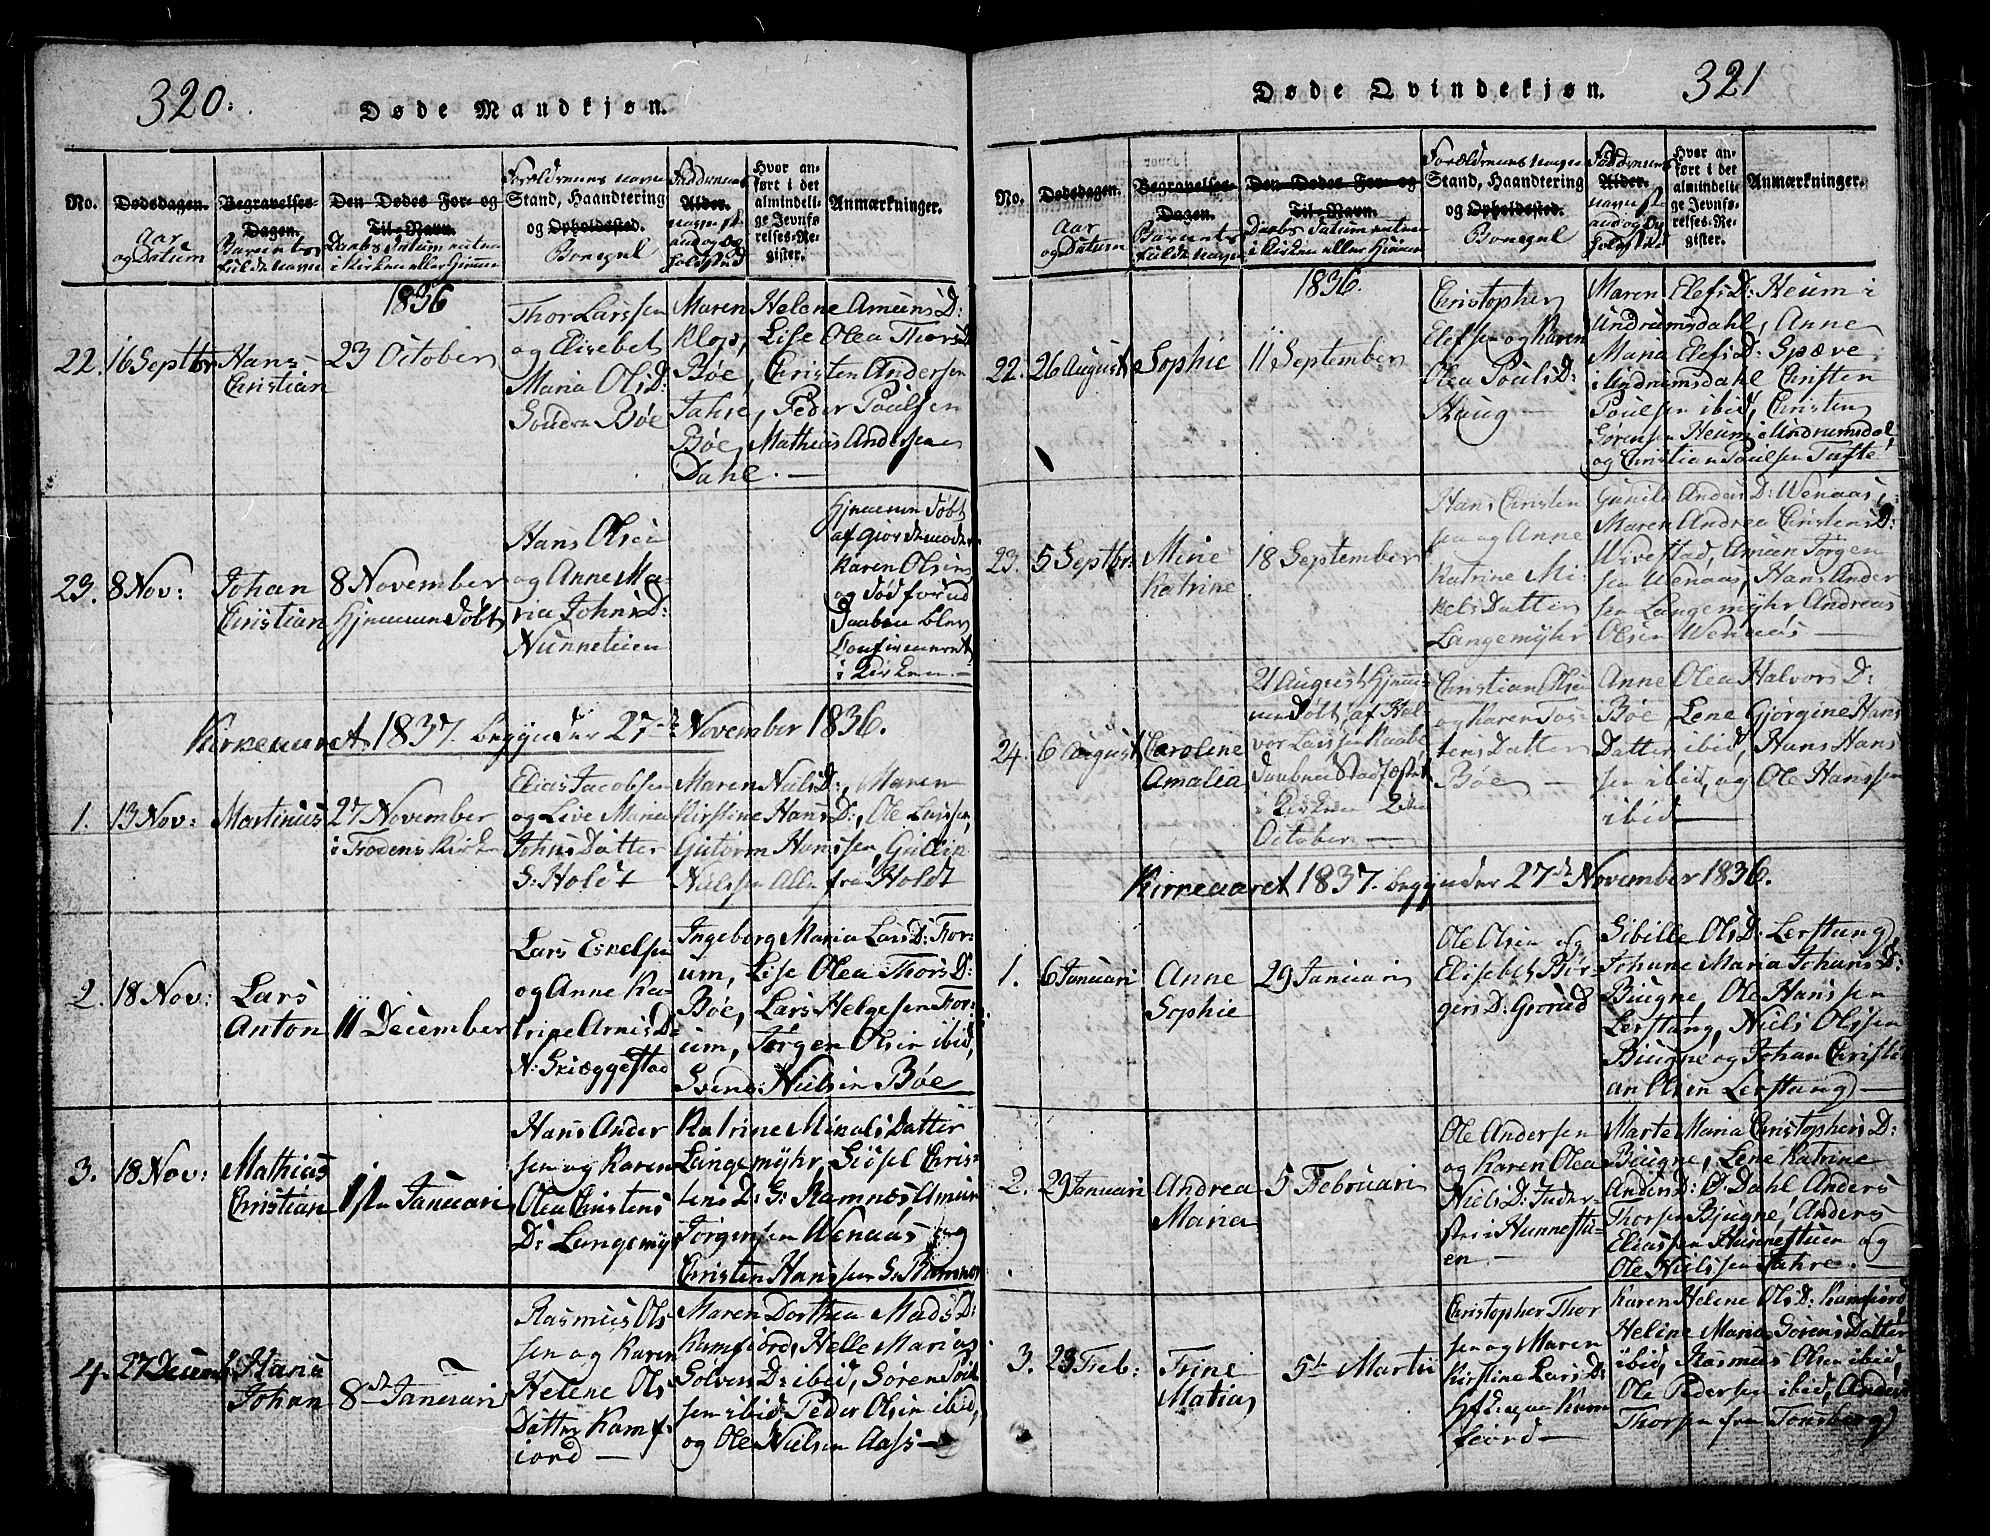 320.
Døde Mandkjøn.
No.
Dødsdagen.
Aar
og Datum
Begravelses-
Dagen.
Barnets
fulde navn
Den Dødes For- og
Til-Navn.
Daabs Datum enten
i Kirken eller Hjemme
Forældrenes navn
Stand, Haandtering
og Opholdssted.
Boepæl
Faddernes
Alder.
navn St
and og Op
holdsted
Hvor an-
ført i det
almindeli-
ge Jevnfø
relses-Re-
gister.
Anmærkninger.
1836
22.
16 Septbr
Hans
Christian
23 October
Thor Larssen
og Elisebet
Maria Ols D:
Søndre Bøe
Maren Helene Amuns D:
Klop, Lise Olea Thors D
Bøe, Christen Andersen
Jahre, Peder Poulsen
Bøe, Mathias Andersen
Dahl. —
23.
8 Nov:
Johan
Christian
8 November
Hjemmen Døbt
Hans Olsen
og Anne Ma-
ria Johns D:
Nunnetuen
Hjemmen Døbt
af giordemoder
Karen Olsens
og Død forud
Daaben blev
Confirmeret
i Kirken. —
Kirkeaaret 1837. begynder 27de November 1836.
1.
13 Nov:
Martinus
27 November
i Frodens Kirke
Elias Jacobsen
og Live Marie
Johns Datter
S: Holdt
Maren Niels D:, Maren
Kirstine Hans D:, Ole Larssen,
Gutorm Hanssen, Gullip
Nielssen Alle fra Holdt
2.
18 Nov:
Lars
Anton
11 December
Lars Eskelsen
og Anne Ka-
trine Arnes D:
N: Skiæggestad
Ingeborg Maria Lars D: For-
um, Lise Olea Thors D:
Bøe, Lars Helgesen For-
um, Jørgen Olsen ibid,
Svend Nielsen Bøe
3.
18 Nov:
Mathias
Christian
1ste Januari
Hans Ander
sen og Karen
Olea Christens
D: Langemyr
Katrine Mikals Datter
Langemyhr, Sidsel Chris-
tens D: S: Ramnæs, Amun
Jørgensen Wenaas og
Christen Hanssen S: Ramnes
4.
27 Decemb
Hans
Johan
8de Januari
Rasmus Ols
sen og Karen
Helene Ols
Datter Kamf-
iord —
Maren Dorthea Mads D:
Kamfiord, Helle Maria
Solves D: ibid, Søren
sen ibid, Peder Olsen ibid,
og Ole Nielsen Aass —
Døde Qvindekjøn.
321
No.
Dødsdagen.
Aar
og Datum
Begravelses-
Dagen.
Barnets
fulde navn
Den Dødes For- og
Til-Navn.
Daabs Datum enten
i Kirken eller Hjemme
Forældrenes navn
Stand, Haandtering
og Opholdssted.
Boepæl
Faddernes
Alder.
navn St
and og Op
holdsted
Hvor an-
ført i det
almindeli-
ge Jevnfø-
relses-Re-
gister.
Anmærkninger.
1836.
22.
26 August
Sophie
11 September
Christopher
Elefsen og Karen
Olea Pouls D:
Haug —
Maren Elefs D: Heum i
Undrumsdahl, Anne
Maria Elefs D: Spæve
i Undrumsdahl Christen
Poulsen ibid, Christen
Sørensen Heum i Undrumsdal,
og Christian Poulsen Tufte
23.
5 Septbr:
Mine
Katrine
18 September
Hans Christen
sen og Anne
Katrine Mi-
kels Datter
Langemyhr
Gunild Anders D: Wenaas,
Maren Andrea Christens D:
Wivestad, Amun Jørgen
sen Wenaas, Hans Ander
sen Langemyhr Andreas
Olsen Wenaas —
24.
6 August
Caroline
Amalia
21 August Hjem-
men Døbt af Hal-
vor Larssen Raabe
Daaben Stadfæstet
i Kirken 2den
October —
Christian Olsen
og Karen Jos-
tens Datter
Bøe —
Anne Olea Halvors D:
Bøe, Lene Gjørgine Hans
Datter ibid, Hans Hans
sen ibid, og Ole Hanssen
ibid —
Kirkeaaret 1837. begynder 27de November 1836.
1.
6 Januari
Anne
Sophie
29 Januari
Ole Olsen og
Elisebet Bør-
gers D: Grorud
Sibille Ols D: Lerstang
Johane Maria Johans D:
Biugne, Ole Hanssen
Lerstang, Niels Olssen
Biugne og Johan Christi
an Olsen Lerstang —
2.
29 Januari
Andrea
Maria
5 Februari
Ole Andersen
og Karen Olea
Niels D: Inder-
ster i Hunnestu-
en —
Marte Maria Christophers D:
Biugne, Lene Katrine
Anders D: Ø: Dahl Anders
Thorsen Bjugne, Anders
Eliassen Hunnestuen og
Ole Nielssen Jahre. —
3.
23 Feb:
Trine
Matias
5te Martii
Christopher Thor
sen og Maren
Kirstine Lars D:
Kam
fiord —
Karen Helene Ols D: Kamfiord,
Helene Maria Sørens Datter
ibid, Rasmus Olsen ibid,
Ole Pedersen ibid, Anders
Thorsen fra Tønsberg